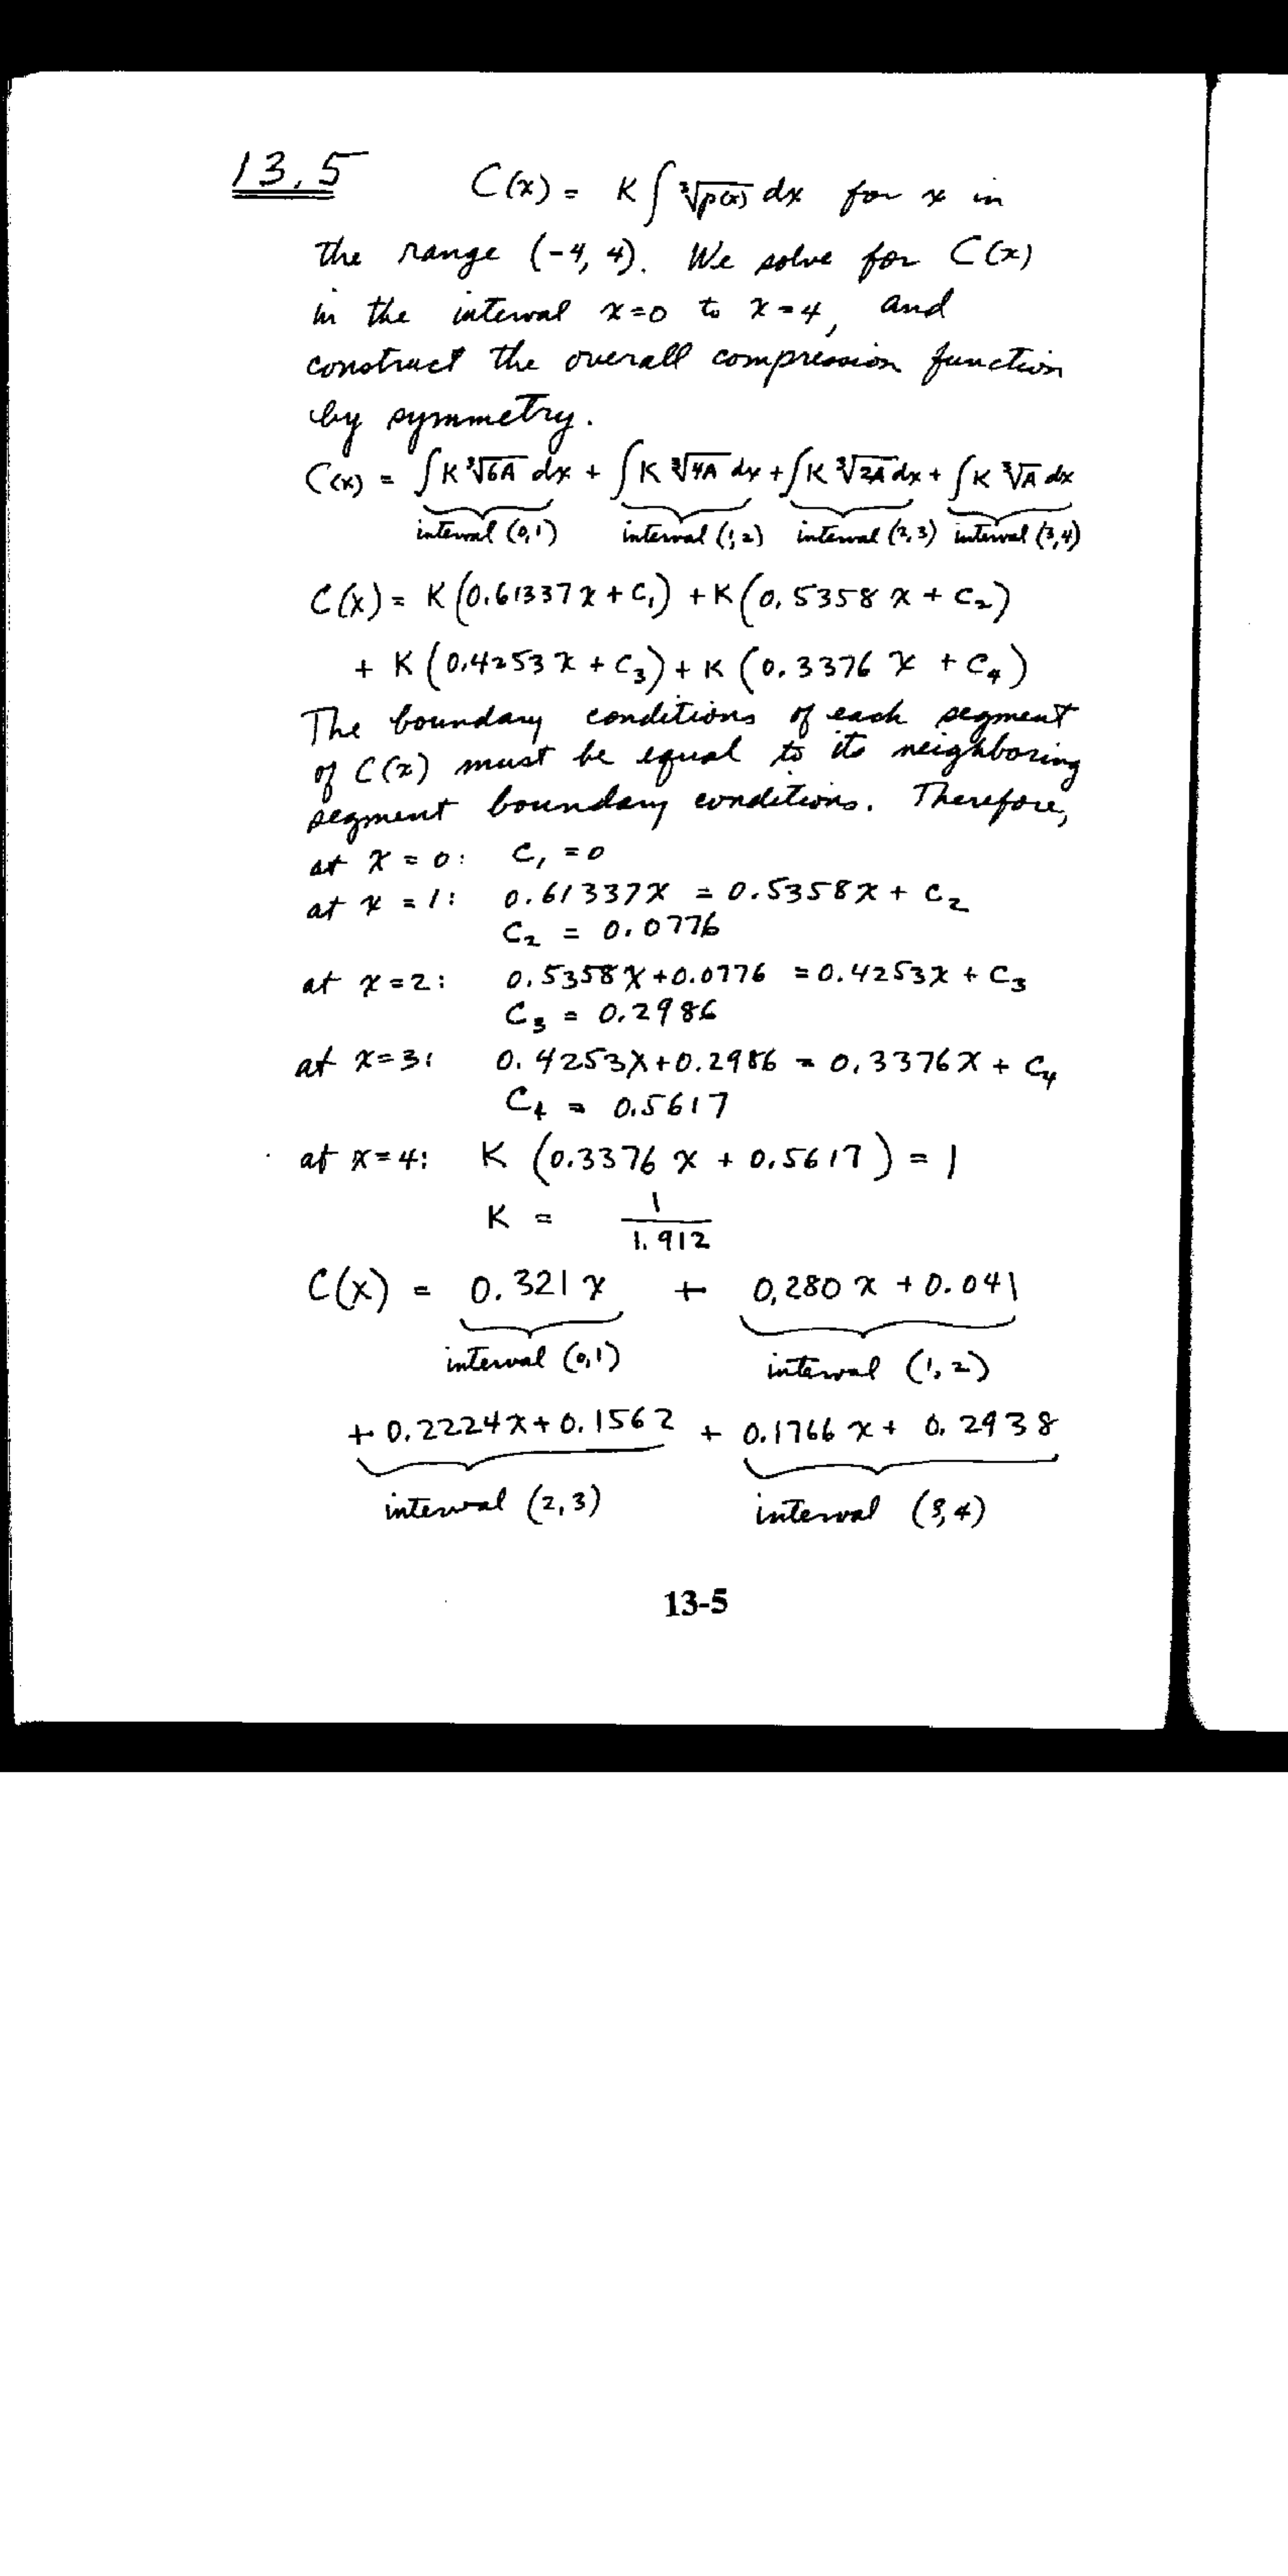 13.5 C(x) = K ∫ ∛p(x) dx for x in
the range (-4, 4). We solve for C(x)
in the interval x=0 to x=4, and
construct the overall compression function
by symmetry.
C(x) = ∫K ∛6A dx + ∫K ∛4A dx + ∫K ∛2A dx + ∫K ∛A dx
interval (0,1) interval (1,2) interval (2,3) interval (3,4)
C(x) = K(0.61337x + C₁) + K(0.5358x + C₂)
+ K(0.4253x + C₃) + K(0.3376x + C₄)
The boundary conditions of each segment
of C(x) must be equal to its neighboring
segment boundary conditions. Therefore,
at x = 0: C₁ = 0
at x = 1: 0.61337x = 0.5358x + C₂
C₂ = 0.0776
at x=2: 0.5358x+0.0776 = 0.4253x + C₃
C₃ = 0.2986
at x=3: 0.4253x+0.2986 = 0.3376x + C₄
C₄ = 0.5617
at x=4: K (0.3376x + 0.5617) = 1
K = 1/1.912
C(x) = 0.321x + 0.280x + 0.041
interval (0,1) interval (1,2)
+ 0.2224x + 0.1562 + 0.1766x + 0.2938
interval (2,3) interval (3,4)
13-5